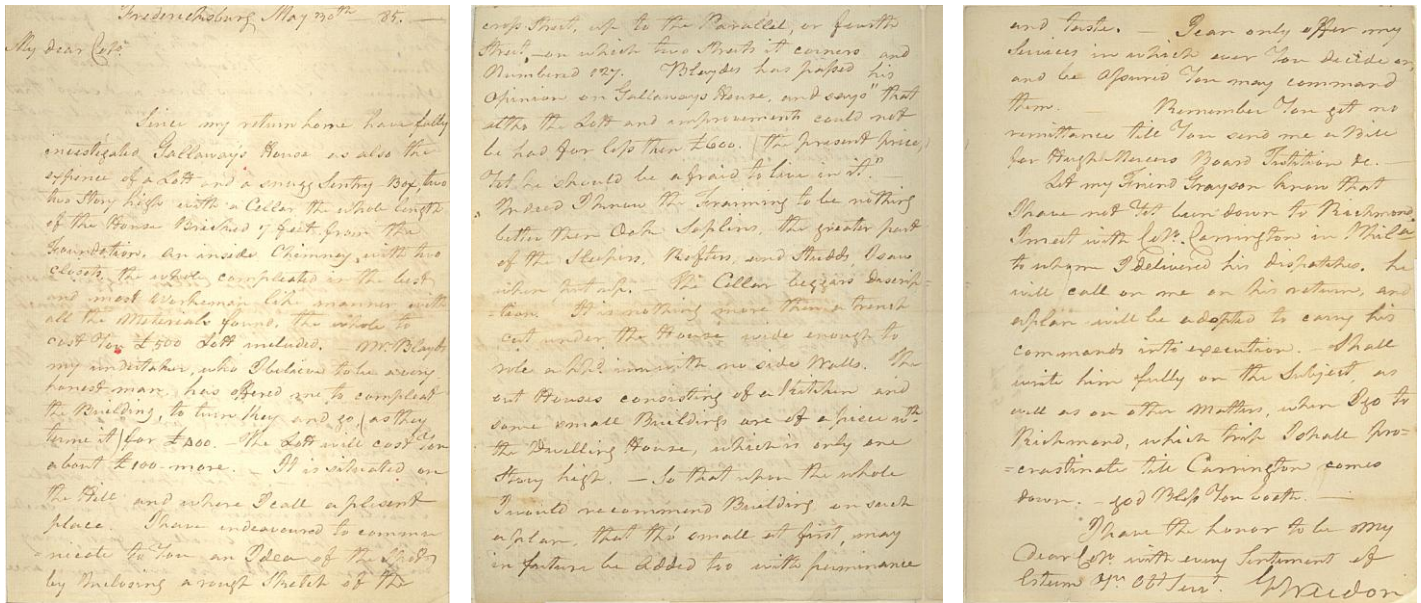 Fredericksburg May 30th — 85. —
My dear Colo
Since my return home have fully
investigated Gallaways House as also the
expence of a Lott and a snugg Sentry-Box, two
two Story high with a Cellar the whole length
of the House Bricked 7 feet from the
Foundation. An inside Chimney, with two
closets, the whole compleated in the best
and most Workeman like manner with
all the Materials found, the whole to
cost You £500 Lott included. — Mr. Blaydes
my undertaker, who I believe to be a very
honest man, has offered me to compleat
the Building, to turn Key and go (as they
turne it) for £400. — The Lott will cost You
about £100 more. — It is situated on
the Hill and where I call a plesent
place. I have endeavoured to commu
nicate to You an Idea of the
by Inclosing a rough Sketch of the
cross Street, up to the Parallel, or fourth
Street, — on which two Streets it corners and
Numbered 127. Blaydes has passed his
Opinion on Gallaways House, and says "that
altho the Lott and improvements could not
be had for less then £600. (the present price,)
Yet he should be afraid to live in it." —
Indeed I know the Framing to be nothing
better then Oak Saplins, the greater part
of the Sleepers, Rafters, and Studds I saw
when put up. — The Cellar beggars Descrip-
-tion. It is nothing more then a trench
cut under the House wide enough to
role a hhd. in with no side Walls. The
out Houses consisting of a Kitchen and
some small Buildings are of a piece wth.
the Dwelling House, which is only one
Story high. — So that upon the whole
I would recommend Building on such
a plan, that tho' small at first, may
in future be added too with perminance
and taste. — I can only offer my
Services in which ever You decide on,
and be assured You may command
them. — Remember You get no
remittance till You send me a Bill
for Hugh Mercers Board Tuition &c. —
Let my Friend Grayson know that
I have not Yet been down to Richmond.
I meet with Colo. Carrington in Phila
to whom I delivered his dispatches. he
will call on me on his return, and
a plan will be adopted to carry his
commands into execution. — Shall
write him fully on the Subject, as
well as on other Matters, when I go to
Richmond, which trip I shall pro=
=crastinate till Carrington comes
down. — god Bless You both. —
I have the honor to be My
Dear Colo. with every Sentiment of
Esteem Yr. Obt Servt. G Weedon